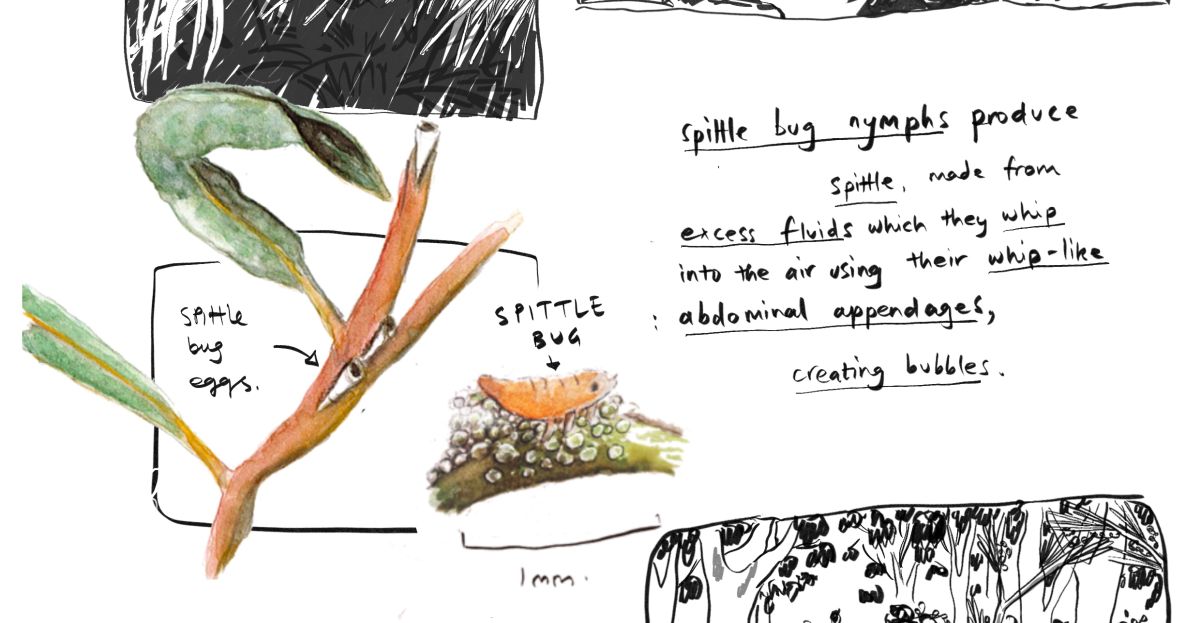 spittle bug nymphs produce
spittle, made from
excess fluids which they whip
into the air using their whip-like
abdominal appendages,
creating bubbles.
Spittle
bug
eggs.
SPITTLE
BUG
1mm.